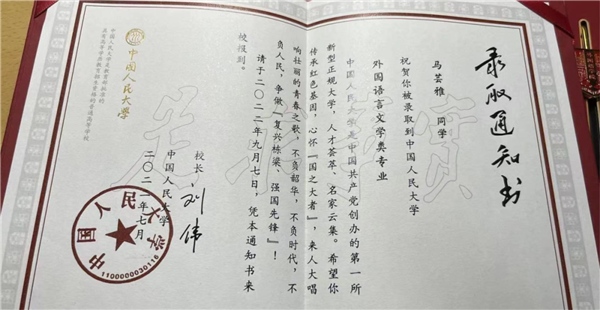 录取通知书
马芸雅 同学
祝贺你被录取到中国人民大学
外国语言文学类专业
中国人民大学是中国共产党创办的第一所
新型正规大学，人才荟萃、名家云集。希望你
传承红色基因，心怀『国之大者』，来人大唱
响壮丽的青春之歌，不负韶华，不负时代，不
负人民，争做『复兴栋梁、强国先锋』！
请于二〇二二年九月七日，凭本通知书来
校报到。
校长：刘伟
中国人民大学
二〇二二年七月
中国人民大学
1100000030116
中国人民大学
中国人民大学是教育部批准的
具有高等学历教育招生资格的普通高等学校
实事求是